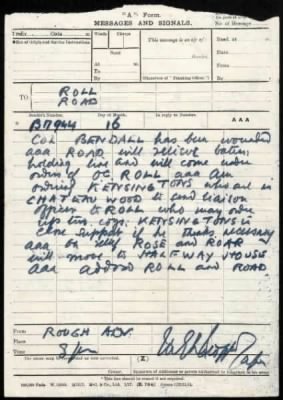 "A" Form.
MESSAGES AND SIGNALS.
No. of Message
Prefix Code
Words
Charge
This message is on a/c of:
Office of Origin and Service Instructions
Sent
At
To
By
Service.
(Signature of "Franking Officer")
Date
From
By
TO
ROLL
ROAD
Sender's Number.
Day of Month.
In reply to Number.
AAA
BM944 16
COL BENDALL has been wounded
aaa ROAD will relieve
holding line and will come under
orders of OC ROLL aaa Am
ordering KENSINGTONS who are in
CHATEAU WOOD to send liaison
officer to ROLL who may order
up two coys KENSINGTONS in
close support if he thinks necessary
aaa ROSE and ROAR
will move to HALFWAY HOUSE
aaa addsd ROLL and ROAD
From
ROUGH ADV.
Place
Time
(Z)
The above may be forwarded as now corrected.
Censor.
Signature of Addressor or person authorised to telegraph in his name
* This line should be erased if not required.